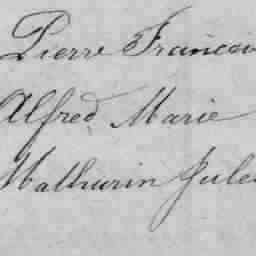 Pierre Francois
Alfred Marie
Mathurin Jules